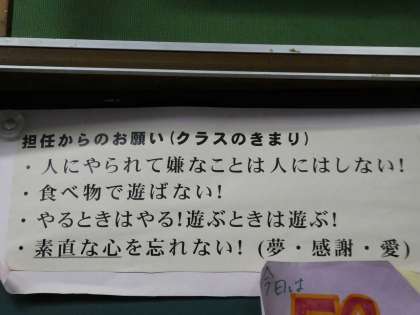 担任からのお願い(クラスのきまり)
・人にやられて嫌なことは人にはしない!
・食べ物で遊ばない!
・やるときはやる!遊ぶときは遊ぶ!
・素直な心を忘れない! (夢・感謝・愛)
今日は